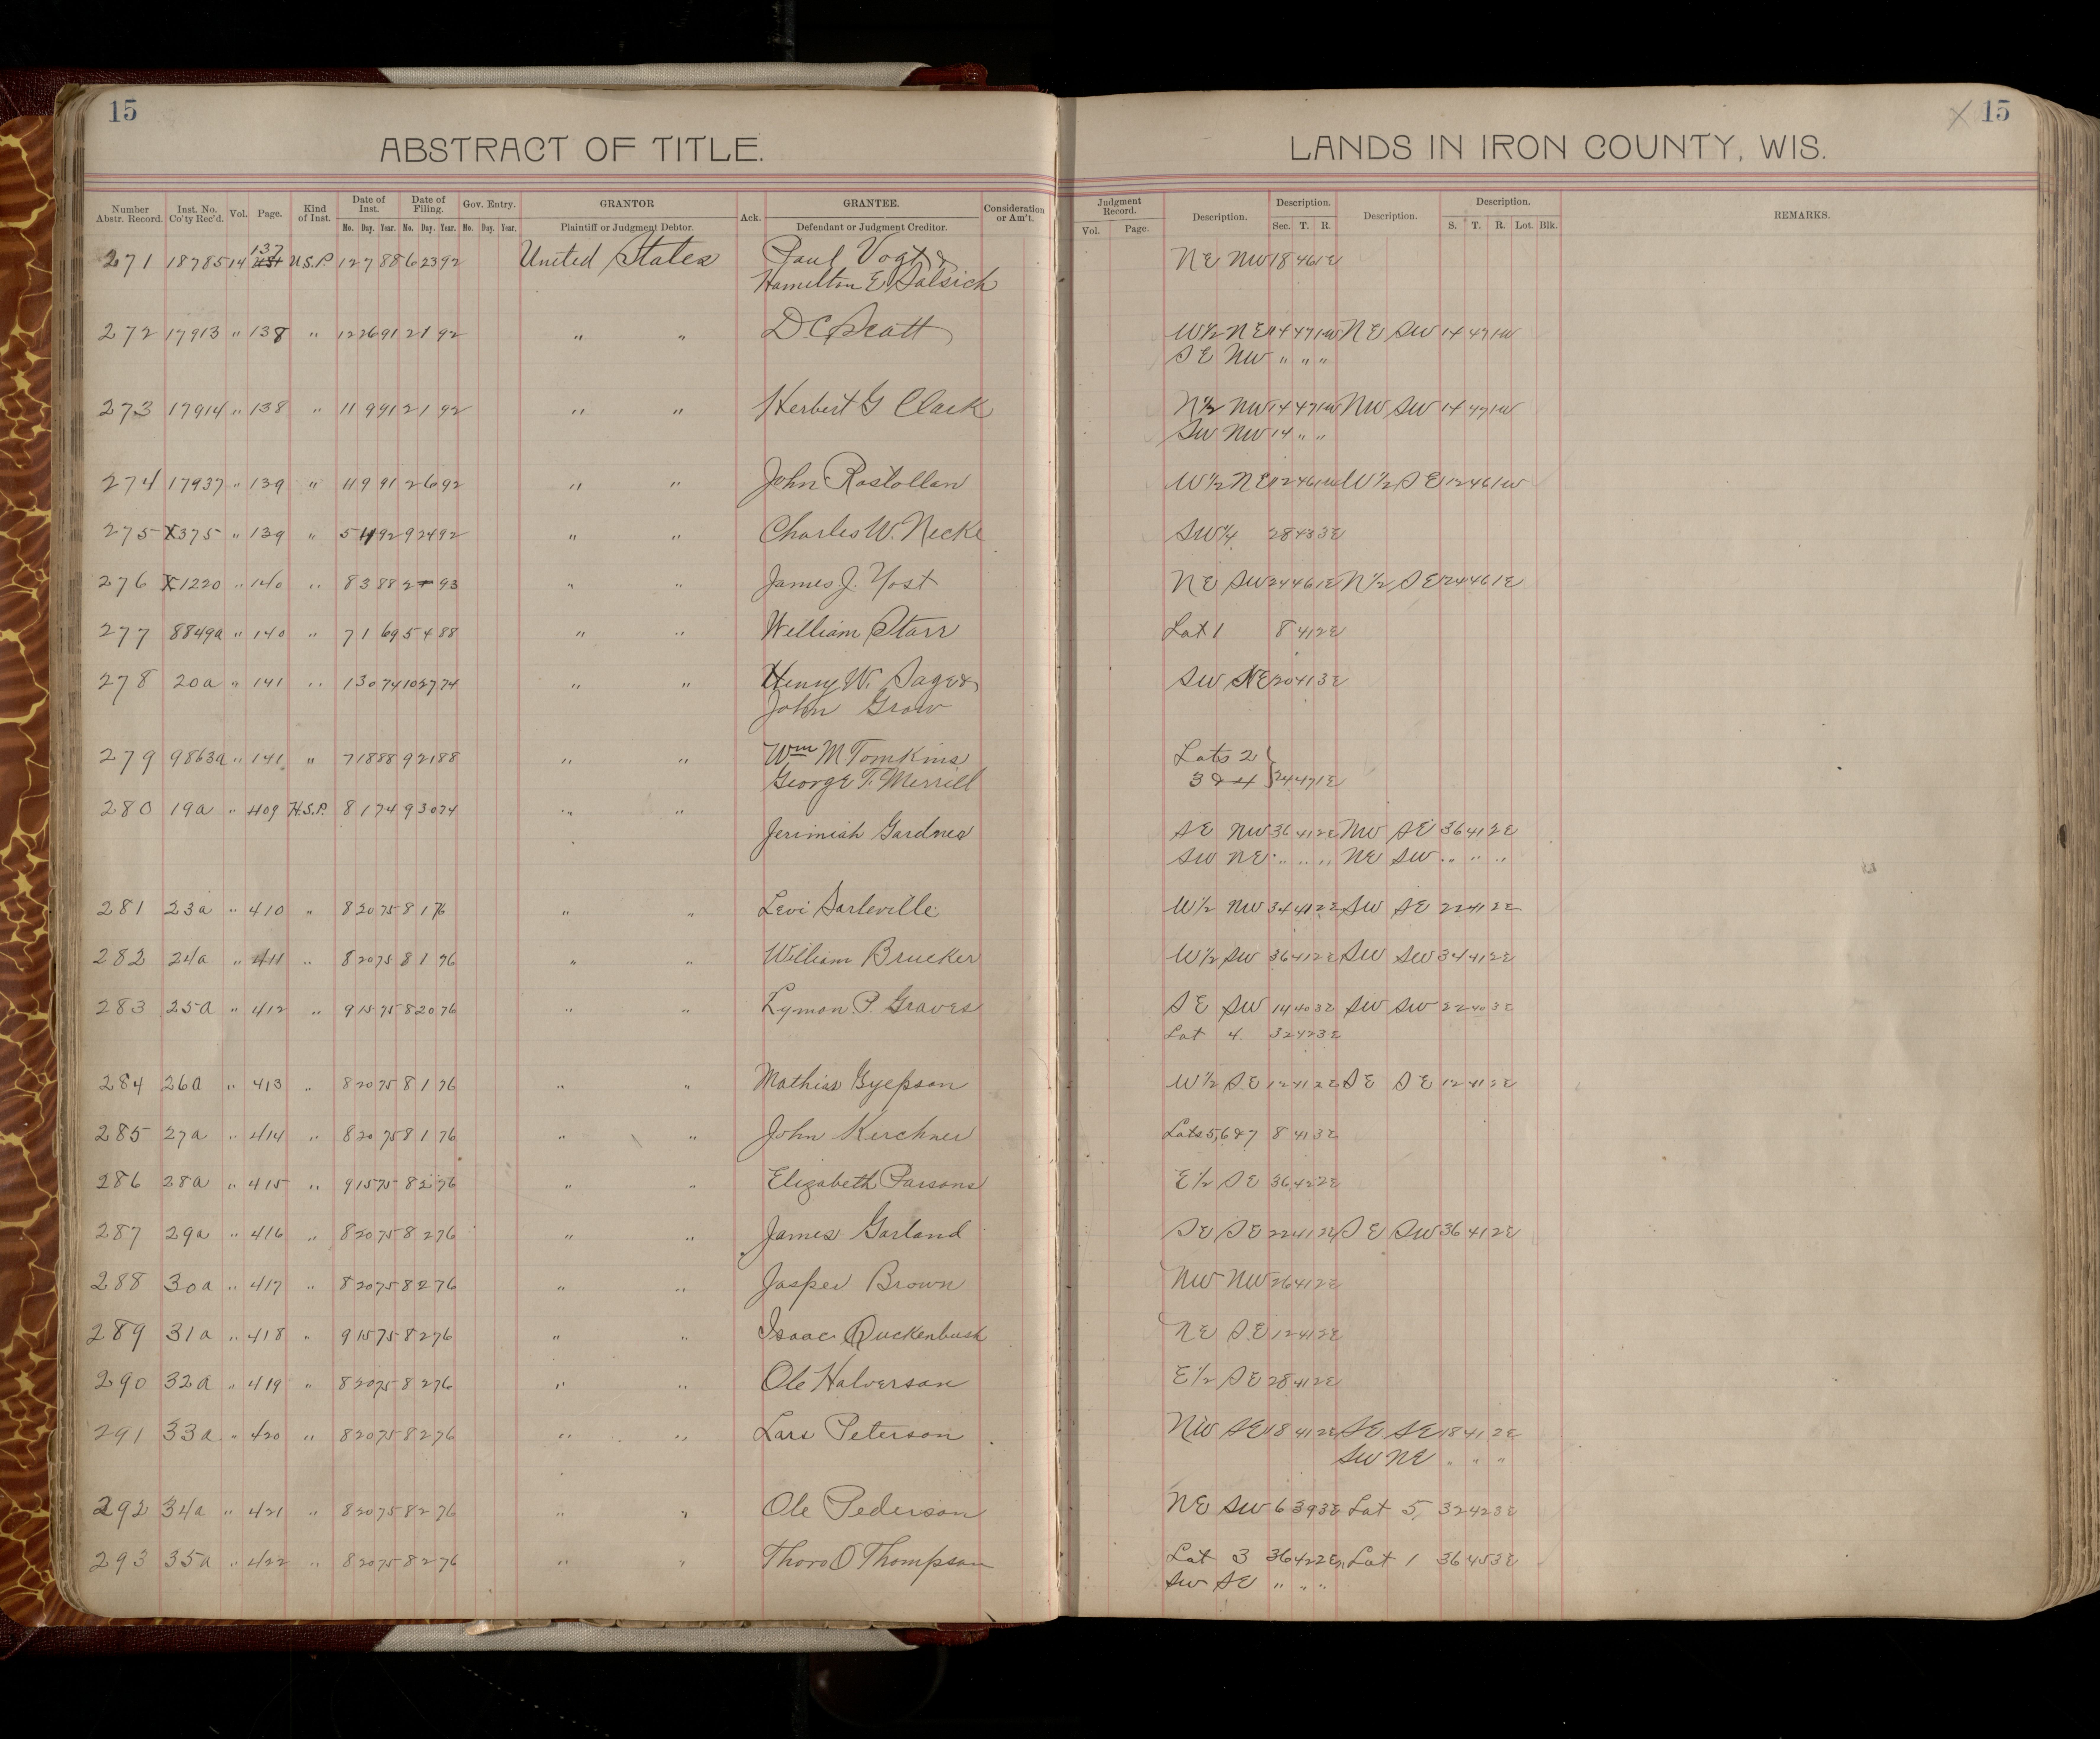 15
ABSTRACT OF TITLE.
Number Abstr. Record. Inst. No. Co'ty Rec'd. Vol. Page. Kind of Inst. Date of Inst. Date of Filing. Gov. Entry. GRANTOR Ack. GRANTEE. Consideration or Am't.
Mo. Day. Year. Mo. Day. Year. No. Day. Year. Plaintiff or Judgment Debtor. Defendant or Judgment Creditor.
137
271 18785 14 U.S.P. 12 7 88 6 23 92 United States Paul Vogt &
Hamilton E Salsich
272 17913 " 138 " 12 26 91 2 1 92 " " D C Scott
273 17914 " 138 " 11 9 91 2 1 92 " " Herbert G Clark
274 17937 " 139 " 11 9 91 2 6 92 " " John Rostollan
275 X375 " 139 " 5 11 92 9 24 92 " " Charles W. Necke
276 X1220 " 140 " 8 3 88 2 93 " " James J. Yost
277 8849a " 140 " 7 1 69 5 4 88 " " William Starr
278 20a " 141 " 1 30 74 10 27 74 " " Henry W. Sage &
John Grow
279 9863a " 141 " 7 18 88 9 21 88 " " Wm M Tomkins
George F. Merrill
280 19a " 409 H.S.P. 8 1 74 9 30 74 " "
Jerimiah Gardner
281 23a " 410 " 8 20 75 8 1 76 " " Levi Sarleville
282 24a " 411 " 8 20 75 8 1 76 " " William Brucker
283 25a " 412 " 9 15 75 8 20 76 " " Lyman P. Graves
284 26a " 413 " 8 20 75 8 1 76 " " Mathias Gyepson
285 27a " 414 " 8 20 75 8 1 76 " " John Kerchner
286 28a " 415 " 9 15 75 8 2 76 " " Elizabeth Parsons
287 29a " 416 " 8 20 75 8 2 76 " " James Garland
288 30a " 417 " 8 20 75 8 2 76 " " Jasper Brown
289 31a " 418 " 9 15 75 8 2 76 " " Isaac Quckenbush
290 32a " 419 " 8 20 75 8 2 76 " " Ole Halverson
291 33a " 420 " 8 20 75 8 2 76 " " Lars Peterson
292 34a " 421 " 8 20 75 8 2 76 " " Ole Pederson
293 35a " 422 " 8 20 75 8 2 76 " " Thoro O Thompson
X 15
LANDS IN IRON COUNTY, WIS.
Judgment Record. Description. Description. Description. Description. REMARKS.
Vol. Page. Sec. T. R. S. T. R. Lot. Blk.
NE NW 18 46 1E
W½ NE 14 47 1W NE SW 14 47 1W
SE NW " " "
N½ NW 14 47 1W NW SW 14 47 1W
SW NW 14 " "
W½ NE 12 46 1W W½ SE 12 46 1W
SW¼ 28 43 3E
NE SW 24 46 1E N½ SE 24 46 1E
Lot 1 8 41 2E
SW NE 20 41 3E
Lots 2
3 & 4 24 47 1E
SE NW 36 41 2E NW SE 36 41 2E
SW NE " " " NE SW " " "
W½ NW 34 41 2E SW SE 22 41 2E
W½ SW 36 41 2E SW SW 34 41 2E
SE SW 14 40 3E SW SW 22 40 3E
Lot 4. 32 42 3E
W½ SE 12 41 2E SE SE 12 41 2E
Lots 5, 6 & 7 8 41 3E
E½ SE 36 42 2E
SE SE 22 41 2E SE SW 36 41 2E
NW NW 26 41 2E
NE SE 12 41 2E
E½ SE 28 41 2E
NW SE 18 41 2E SE SE 18 41 2E
SW NE " " "
NE SW 6 39 3E Lot 5, 32 42 3E
Lot 3 36 42 2E Lot 1 36 43 3E
SW SE " " "